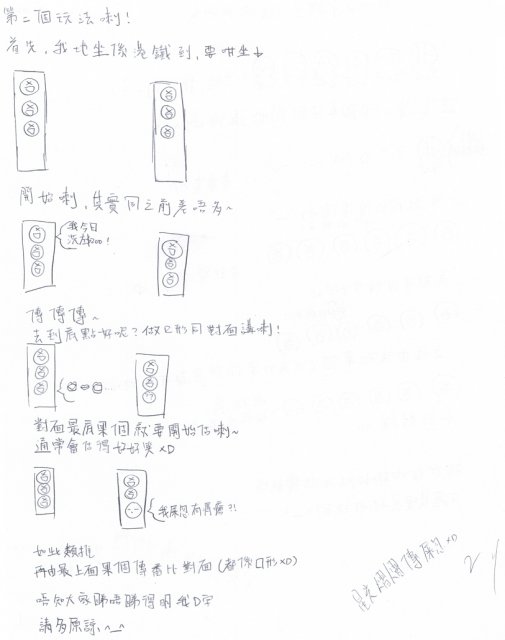 第二個玩法喇!
首先,我地坐係港鐵到,要咁坐↓
開始喇,其實同之前差唔多~
我今日
傳傳傳~
去到底點好呢?做口形同對面講喇!
對面最尾果個就要開始估喇~
通常會估得好好笑xD
我屎忽有青瘡?!
如此類推
再由最上面果個傳番比對面(都係口形xD)
唔知大家睇唔睇得明我D字
請多原諒、^_^
傳 xD
2